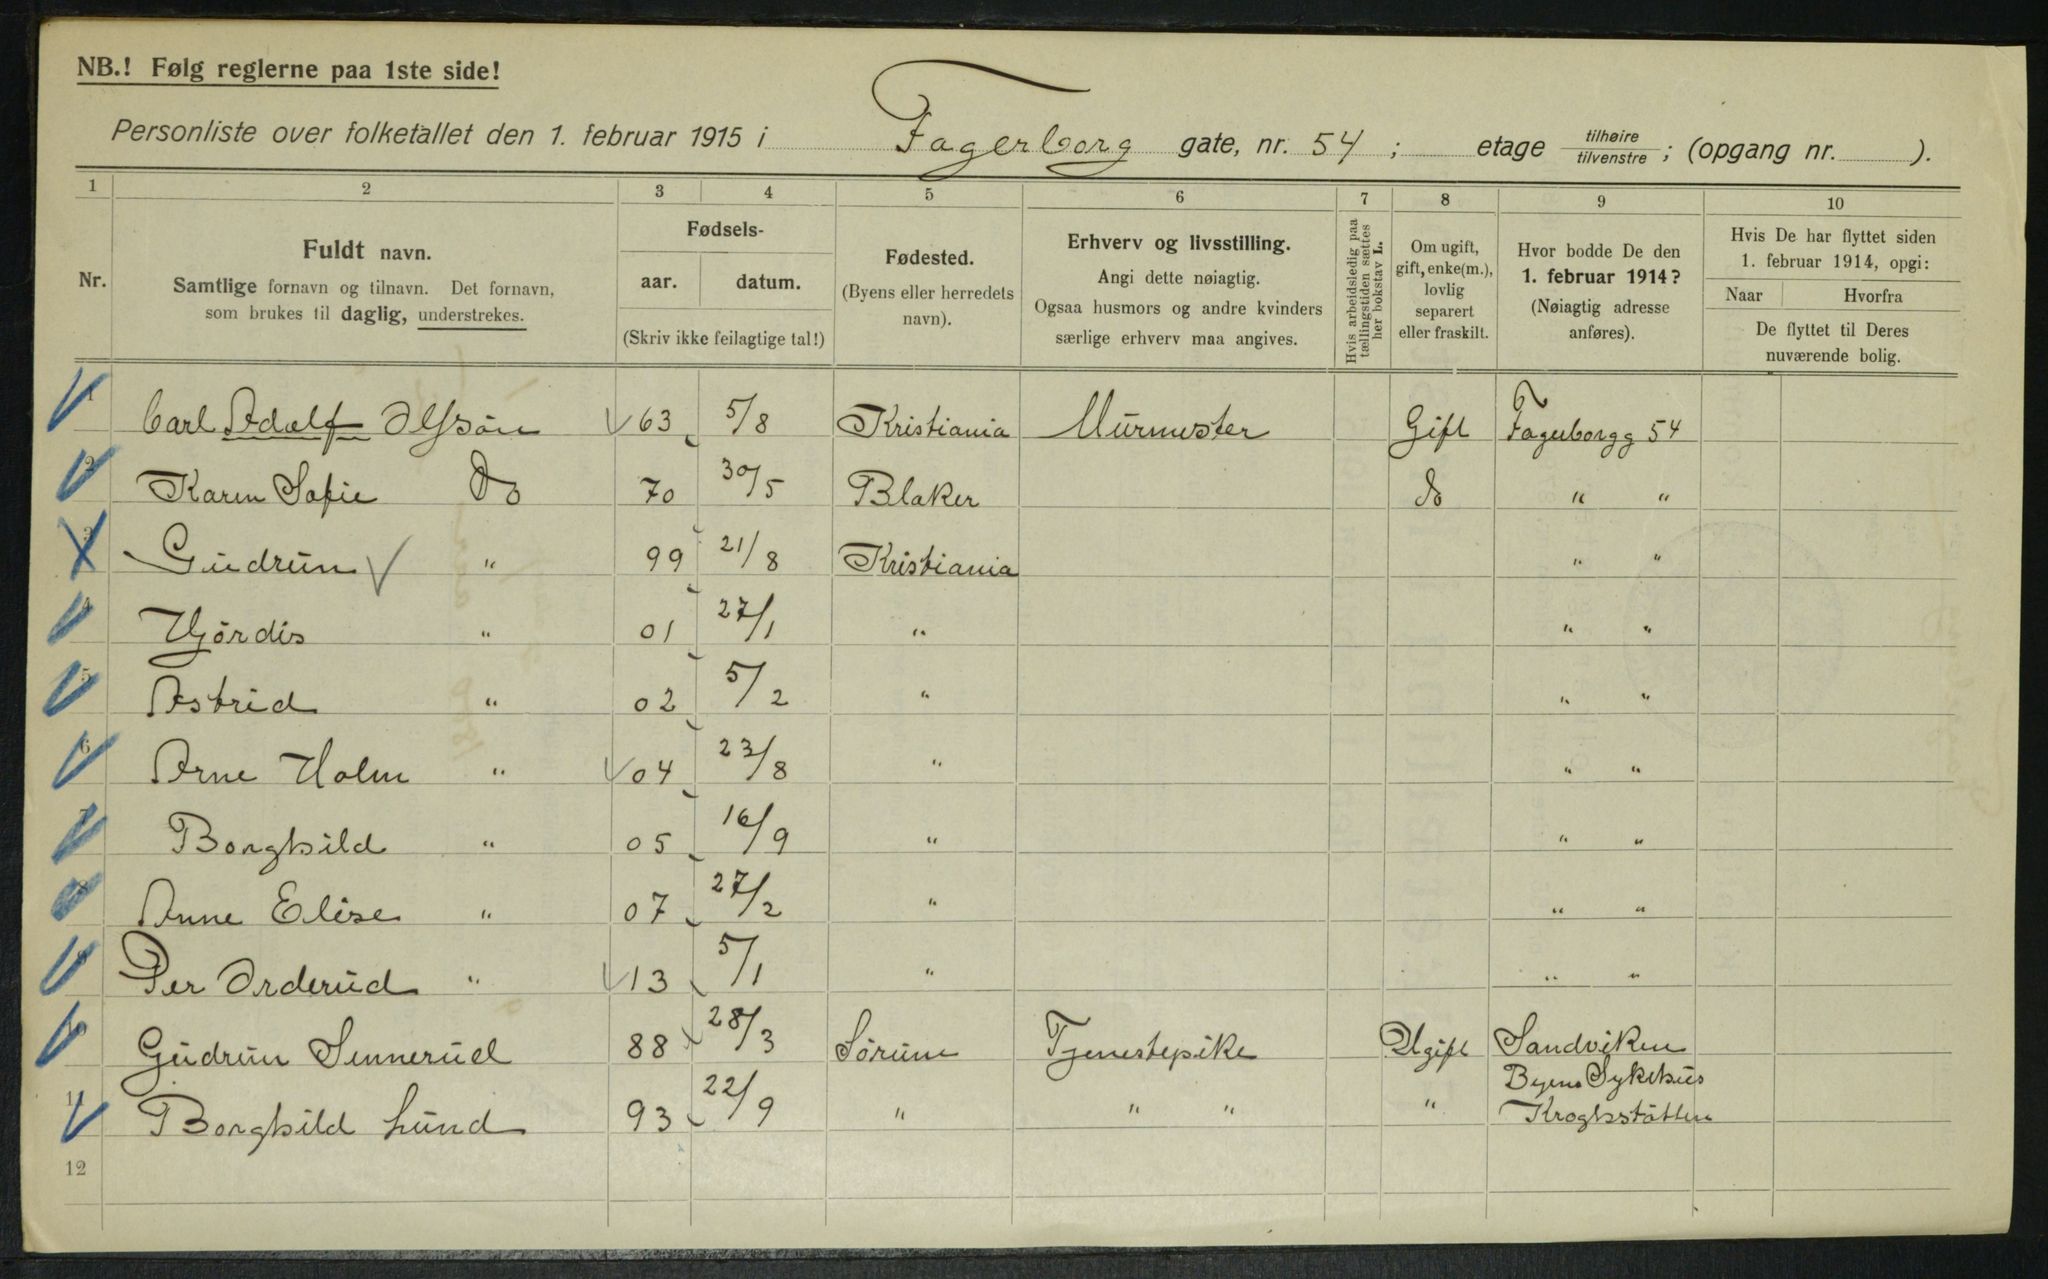 NB.! Følg reglerne paa 1ste side!
Personliste over folketallet den 1. februar 1915 i Fagerborg gate, nr. 54 ; etage tilhøire / tilvenstre ; (opgang nr. ).
1 2 3 4 5 6 7 8 9 10
Nr.
Fuldt navn.
Samtlige fornavn og tilnavn. Det fornavn,
som brukes til daglig, understrekes.
Fødsels-
aar. datum.
(Skriv ikke feilagtige tal!)
Fødested.
(Byens eller herredets
navn).
Erhverv og livsstilling.
Angi dette nøiagtig.
Ogsaa husmors og andre kvinders
særlige erhverv maa angives.
Hvis arbeidsledig paa
tællingstiden sættes
her bokstav L.
Om ugift,
gift, enke(m.),
lovlig
separert
eller fraskilt.
Hvor bodde De den
1. februar 1914?
(Nøiagtig adresse
anføres).
Hvis De har flyttet siden
1. februar 1914, opgi:
Naar Hvorfra
De flyttet til Deres
nuværende bolig.
1 Carl Adolf Olsson 63 5/8 Kristiania Murmester Gift Fagerborgg 54
2 Karen Sofie Do 70 30/5 Blaker do " "
3 Gudrun " 99 21/8 Kristiania " "
4 Hjørdis " 01 27/1 " " "
5 Astrid " 02 5/2 " " "
6 Arne Holm " 04 23/8 " " "
7 Borghild " 05 16/9 " " "
8 Anne Elise " 07 27/2 " " "
9 Per Orderud " 13 5/1 " " "
10 Gudrun Sennerud 88 28/3 Sørum Tjenestepike Ugift Sandviken
Byens Sykehus
11 Borghild Lund 93 22/9 " " " " Kroghstøtten
12